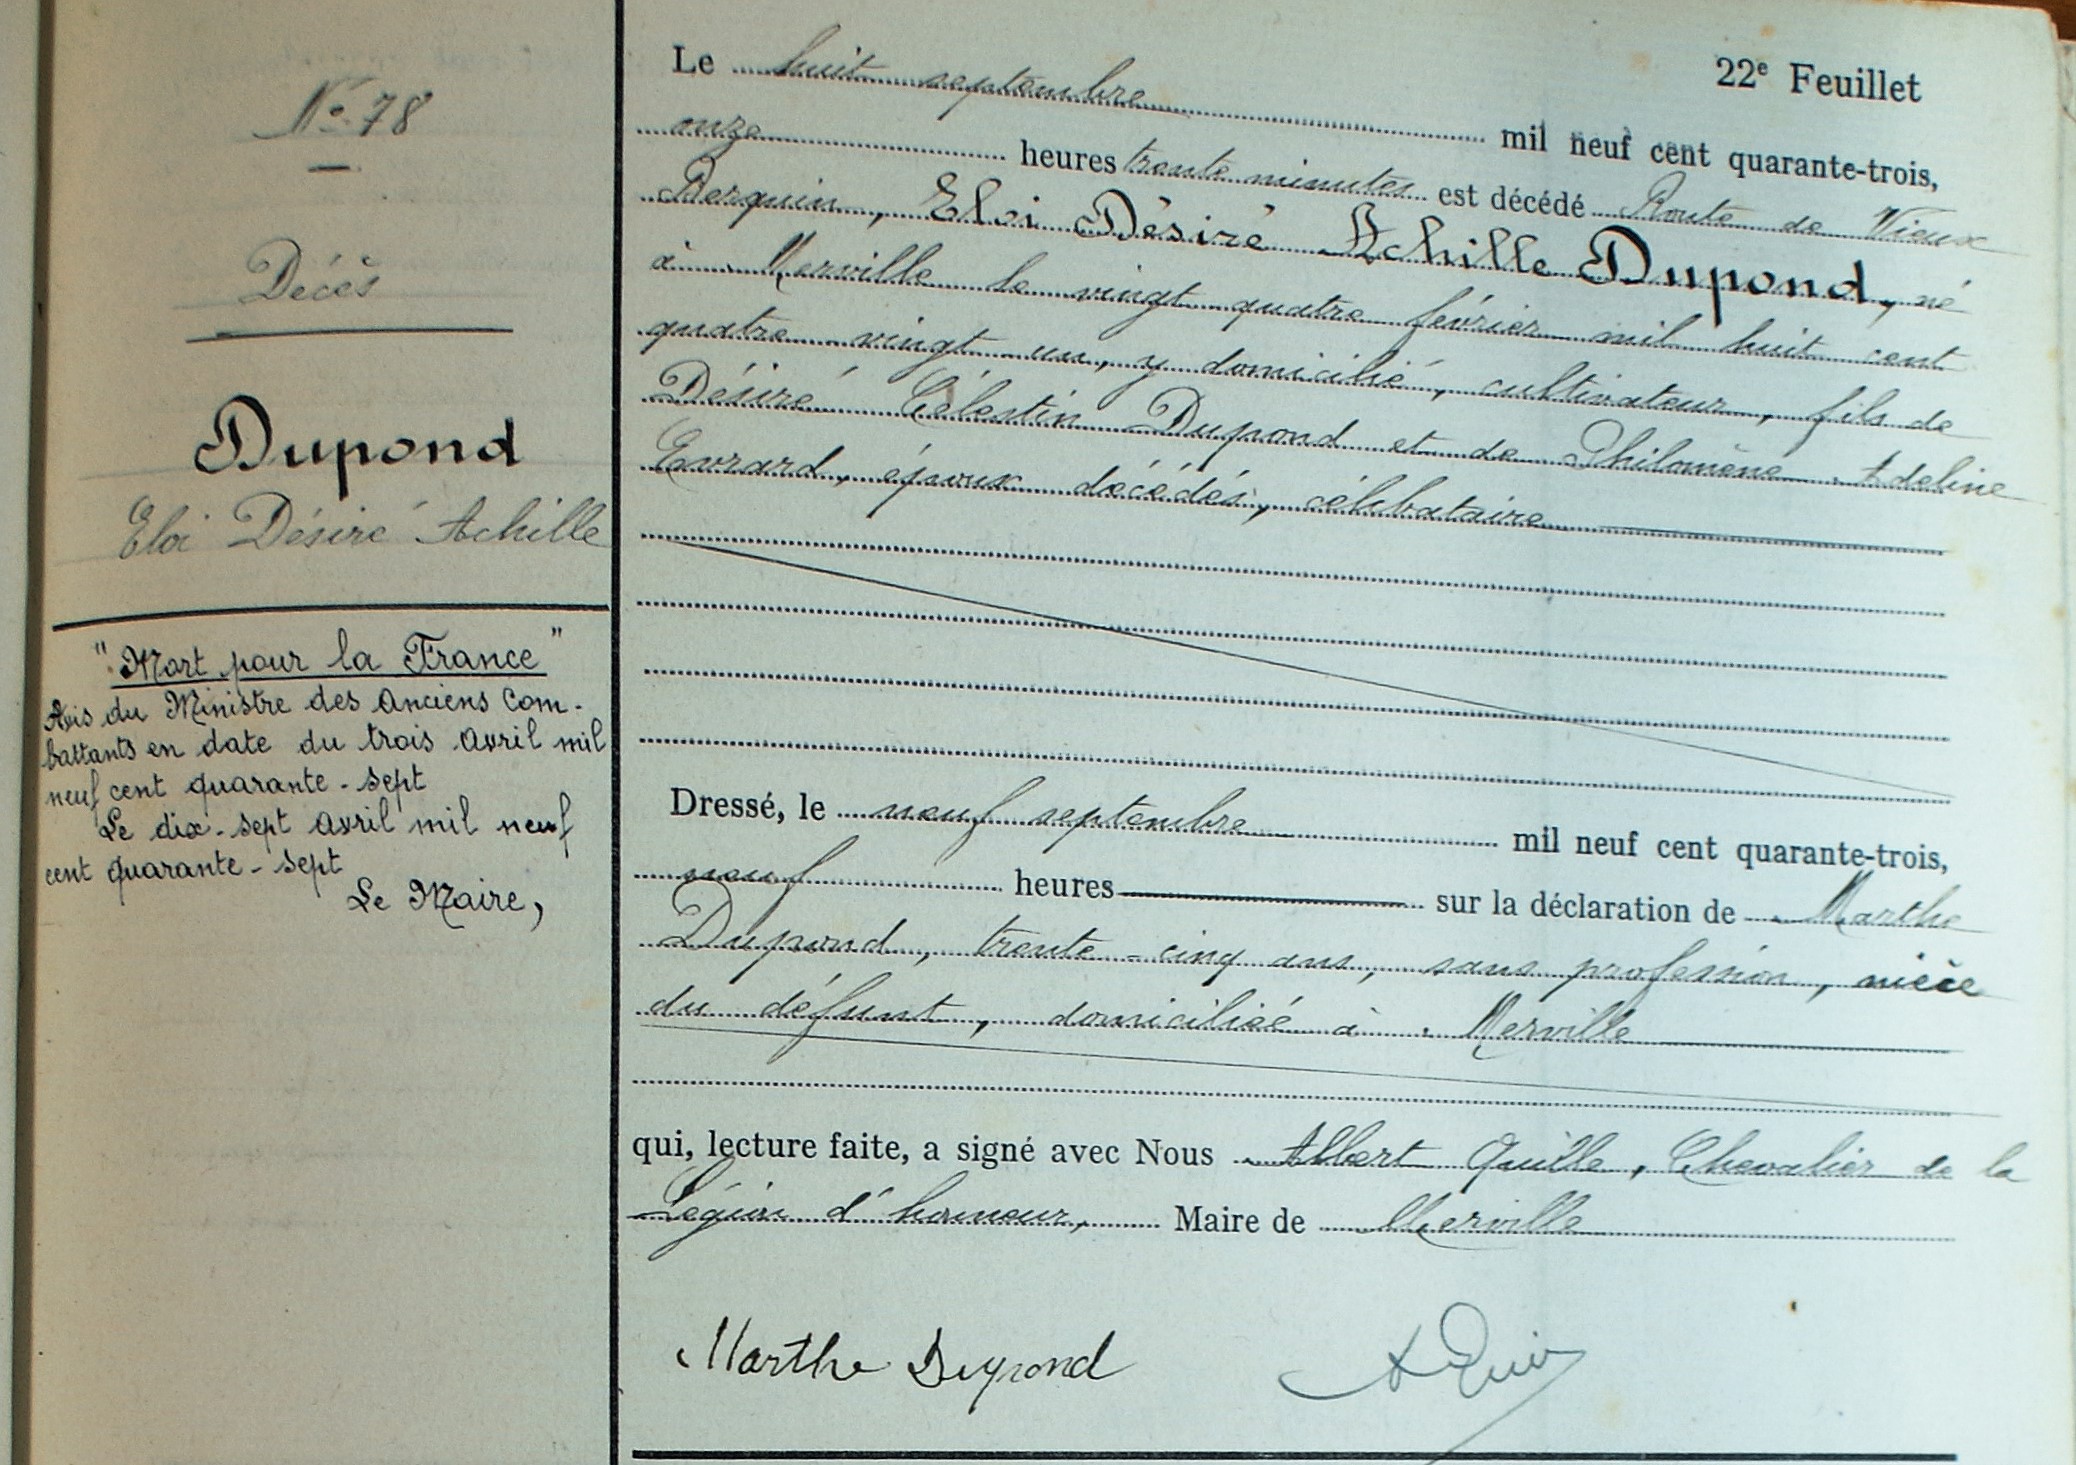 22e Feuillet
N° 78
Décès
Dupond
Eloi Désiré Achille
"Mort pour la France"
Avis du Ministre des Anciens Com-
battants en date du trois avril mil
neuf cent quarante-sept
Le dix-sept avril mil neuf
cent quarante-sept
Le Maire,
Le huit septembre mil neuf cent quarante-trois,
onze heures trente minutes est décédé Route de Vieux
Berquin, Eloi Désiré Achille Dupond, né
à Merville le vingt quatre février mil huit cent
quatre vingt un, y domicilié, cultivateur, fils de
Désiré Célestin Dupond et de Philomène Adeline
Evrard, époux décédés, célibataire
Dressé, le neuf septembre mil neuf cent quarante-trois,
neuf heures sur la déclaration de Marthe
Dupond, trente-cinq ans, sans profession, nièce
du défunt, domiciliée à Merville
qui, lecture faite, a signé avec Nous Albert Quille, Chevalier de la
Légion d'honneur, Maire de Merville
Marthe Dupond